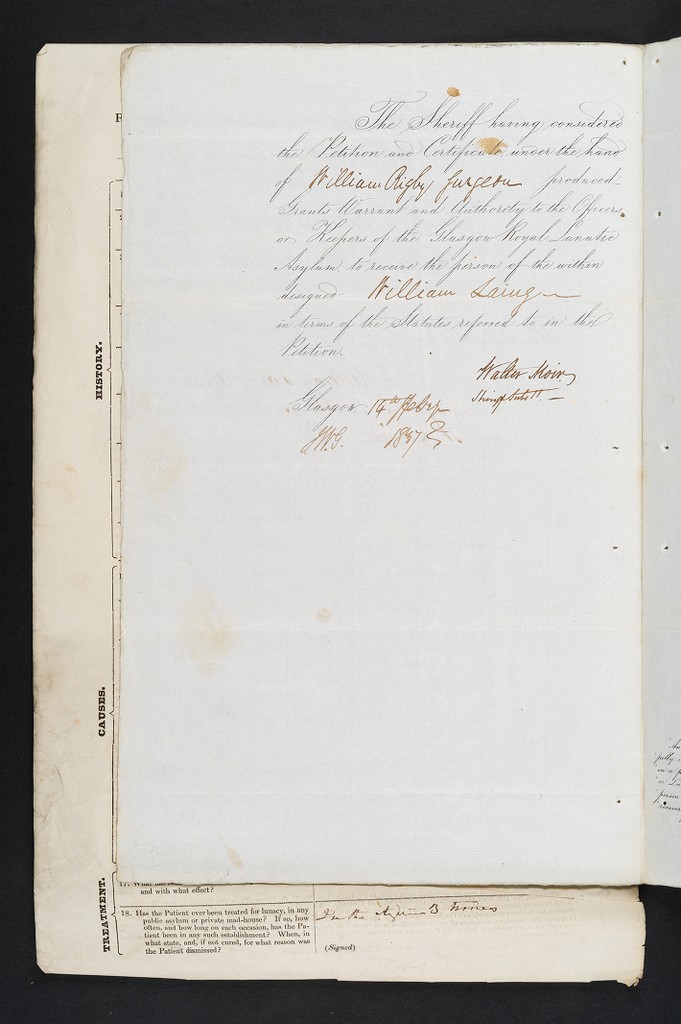 The Sheriff having considered
the Petition and Certificate, under the hand
of William Rigby Surgeon produced
Grants Warrant and Authority to the Officers
or Keepers of the Glasgow Royal Lunatic
Asylum, to receive the person of the within
designed William Laing
in terms of the Statutes referred to in the
Petition.
Walter Moir
Glasgow 14th Feby
1847
HISTORY.
CAUSES.
TREATMENT.
and with what effect?
18. Has the Patient ever been treated for lunacy, in any
public asylum or private mad-house? If so, how
often, and how long on each occasion, has the Pa-
tient been in any such establishment? When, in
what state, and, if not cured, for what reason was
the Patient dismissed?
In the Asylum 3 times
(Signed)